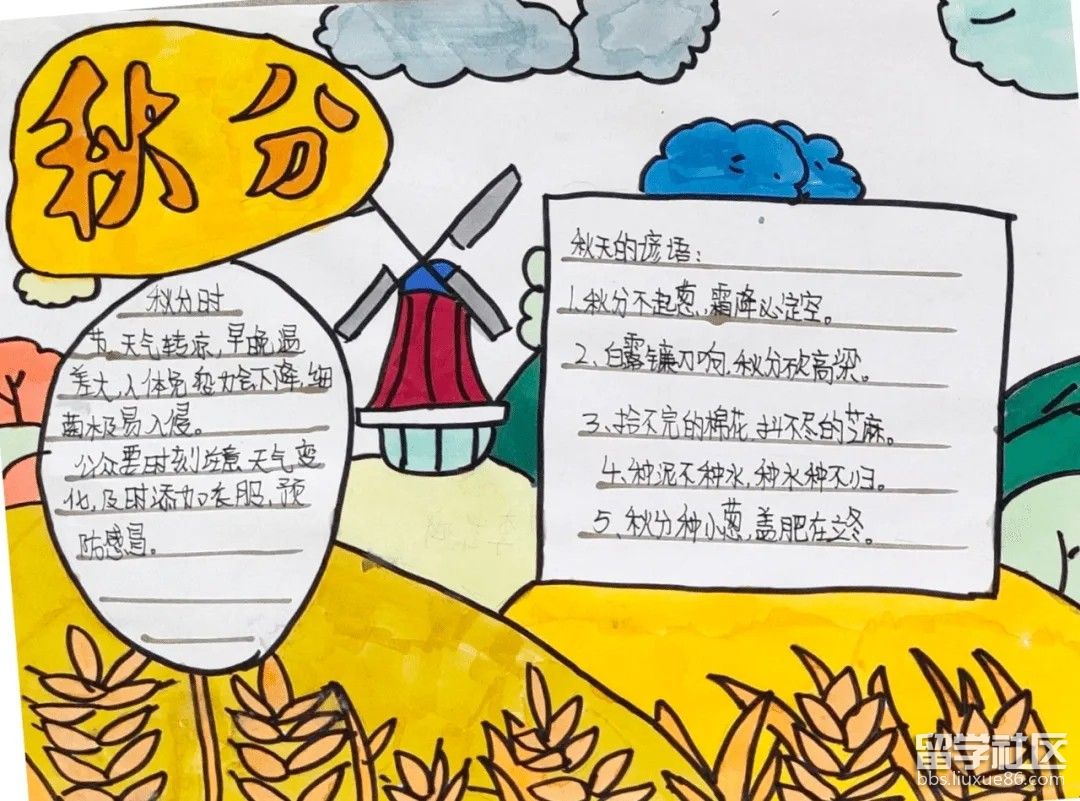 秋分
秋分时
节，天气转凉，早晚温
差大，人体免疫力会下降，细
菌极易入侵。
公众要时刻注意天气变
化，及时添加衣服，预
防感冒。
秋天的谚语：
1.秋分不起葱，霜降必定空。
2、白露镰刀响，秋分砍高粱。
3、拾不完的棉花，抖不尽的芝麻。
4、种泥不种水，种水种不归。
5、秋分种小葱，盖肥在立冬。
留学社区
bbs.liuxue86.com